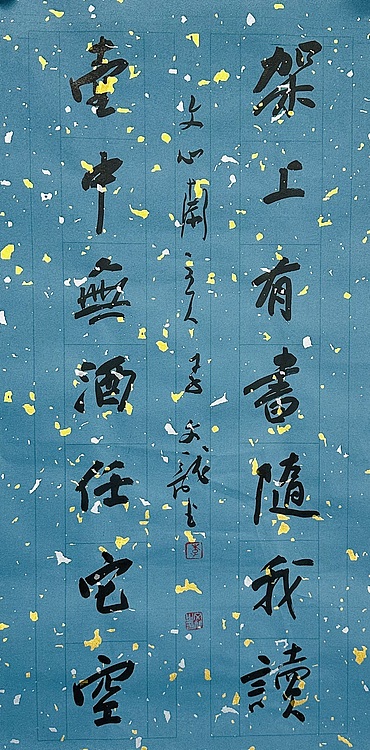 架上有書隨我讀
壺中無酒任它空
文心閣主人李文龍書